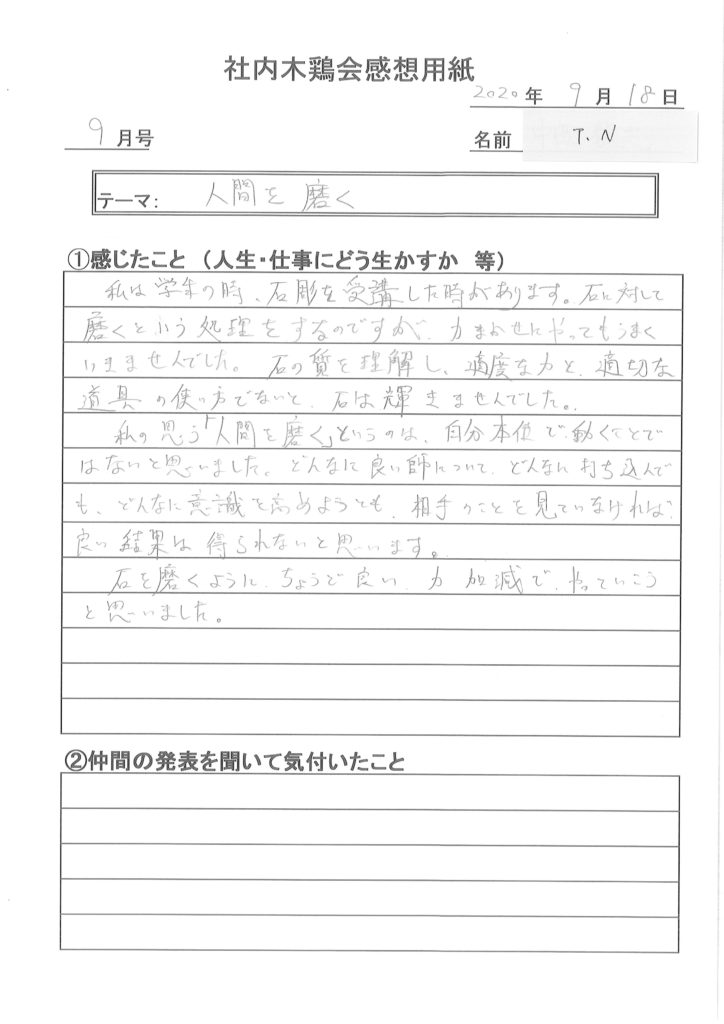 社内木鶏会感想用紙
2020年 9月18日
9月号
名前 T.N
テーマ: 人間を磨く
①感じたこと（人生・仕事にどう生かすか 等）
私は学生の時、石彫を受講した時があります。石に対して
磨くという処理をするのですが、力まかせにやってもうまく
いきませんでした。石の質を理解し、適度な力と、適切な
道具の使い方でないと、石は輝きませんでした。
私の思う「人間を磨く」というのは、自分本位で動くことで
はないと思いました。どんなに良い師について、どんなに打ち込んで
も、どんなに意識を高めようとも、相手のことを見ていなければ
良い結果は得られないと思います。
石を磨くように、ちょうど良い、力加減で、やっていこう
と思いました。
②仲間の発表を聞いて気付いたこと